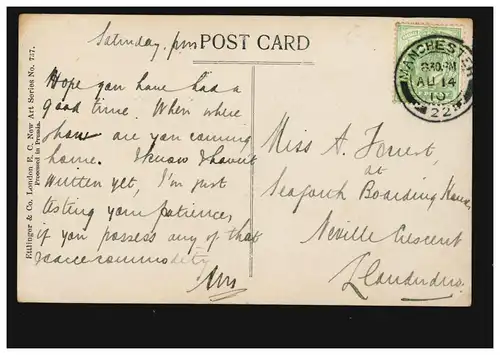 Saturday. pm
POST CARD
Hope you have had a
good time. When where
& how are you coming
home. I know I haven't
written yet, I'm just
testing your patience,
if you possess any of that
scarce commodity
Miss A. Forrest,
at
Seaforth Boarding House
Neville Crescent
Llandudno.
MANCHESTER
8.30 PM
AU 14
10
22
Ettlinger & Co. London E. C. New Art Series No. 737.
Processed in Prussia.